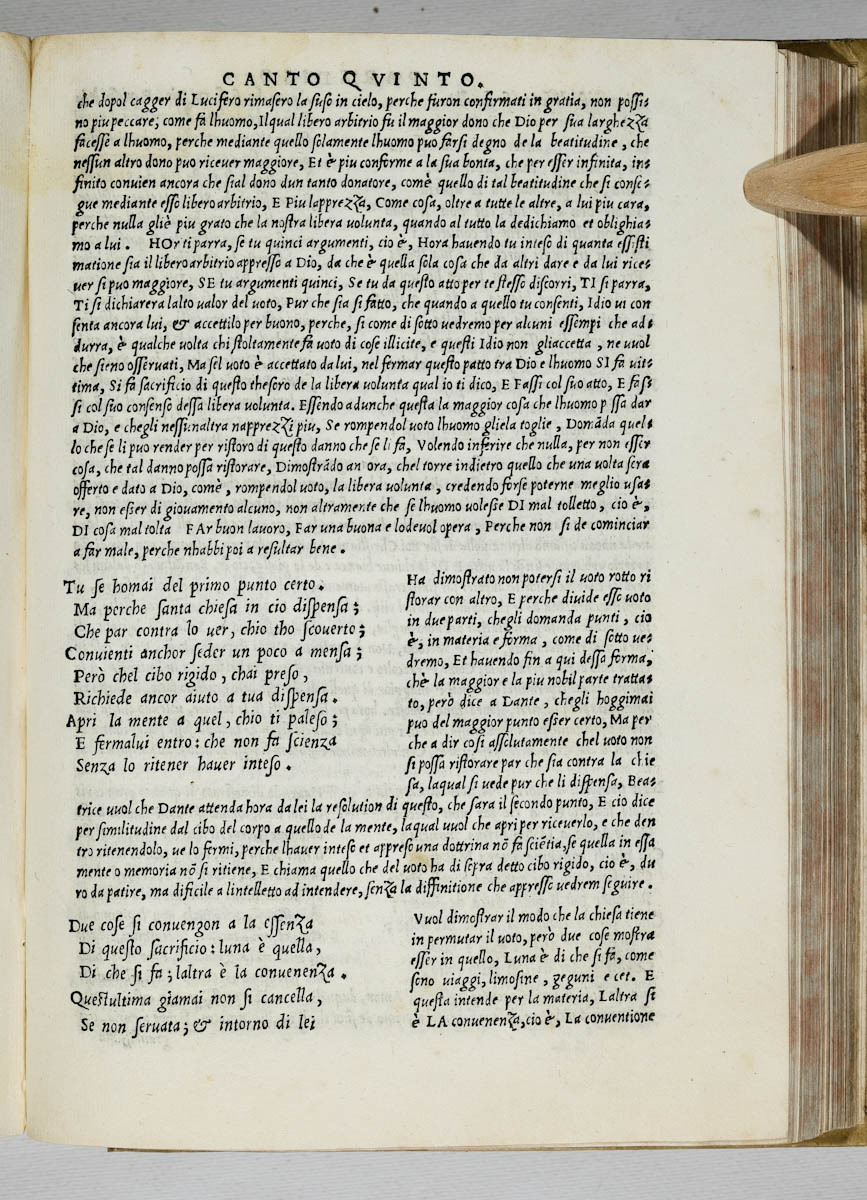 CANTO QVINTO.
che dopol cagger di Lucifero rimasero la suso in cielo, perche furon confirmati in gratia, non possi-
no piu peccare, come fa lhuomo, Il qual libero arbitrio fu il maggior dono che Dio per sua larghezza
facesse a lhuomo, perche mediante quello solamente lhuomo puo farsi degno de la beatitudine, che
nessun altro dono puo riceuer maggiore, Et è piu conforme a la sua bonta, che per esser infinita, in-
finito conuien ancora che sial dono dun tanto donatore, comè quello di tal beatitudine che si conse-
gue mediante esso libero arbitrio, E Piu lapprezza, Come cosa, oltre a tutte le altre, a lui piu cara,
perche nulla gliè piu grato che la nostra libera volunta, quando al tutto la dedichiamo et oblighia-
mo a lui. HOr ti parra, se tu quinci argumenti, cio è, Hora hauendo tu inteso di quanta essisti
matione sia il libero arbitrio appresso a Dio, da che è quella sola cosa che da altri dare e da lui rice-
uer si puo maggiore, SE tu argumenti quinci, Se tu da questo atto per te stesso discorri, TI si parra,
Ti si dichiarera lalto ualor del uoto, Pur che sia si fatto, che quando a quello tu consenti, Idio ui con
senta ancora lui, & accettilo per buono, perche, si come di sotto uedremo per alcuni essempi che ad-
durra, è qualche uolta chi stoltamente fa uoto di cose illicite, e questi Idio non gliaccetta, ne uuol
che sieno osseruati, Ma sel uoto è accettato da lui, nel fermar questo patto tra Dio e lhuomo SI fa uit-
tima, Si fa sacrificio di questo thesoro de la libera uolunta qual io ti dico, E Fassi col suo atto, E fas-
si col suo consenso dessa libera uolunta. Essendo adunche questa la maggior cosa che lhuomo possa dar
a Dio, e chegli nessunaltra napprezzi piu, Se rompendol uoto lhuomo gliela toglie, Domãda quel-
lo che se li puo render per ristoro di questo danno che se li fa, Volendo inferire che nulla, per non esser
cosa, che tal danno possa ristorare, Dimostrãdo ancora, chel torre indietro quello che una uolta sera
offerto e dato a Dio, comè, rompendol uoto, la libera uolunta, credendo forse poterne meglio usa-
re, non esser di giouamento alcuno, non altramente che se lhuomo uolesse DI mal tolletto, cio è,
DI cosa mal tolta FAr buon lauoro, Far una buona e lodeuol opera, Perche non si de cominciar
a far male, perche nhabbi poi a resultar bene.
Tu se homai del primo punto certo.
Ma perche santa chiesa in cio dispensa;
Che par contra lo uer, chio tho scouerto;
Conuienti anchor seder un poco a mensa;
Però chel cibo rigido, chai preso,
Richiede ancor aiuto a tua dispensa.
Apri la mente a quel, chio ti paleso;
E fermalui entro: che non fa scienza
Senza lo ritener hauer inteso.
Ha dimostrato non potersi il uoto rotto ri
storar con altro, E perche diuide esso uoto
in due parti, chegli domanda punti, cio
è, in materia e forma, come di sotto ue-
dremo, Et hauendo fin a qui dessa forma,
chè la maggior e la piu nobil parte tratta-
to, però dice a Dante, chegli hoggimai
puo del maggior punto esser certo, Ma per
che a dir cosi assolutamente chel uoto non
si possa ristorare par che sia contra la chie
sa, laqual si uede pur che li dispensa, Bea-
trice uuol che Dante attenda hora da lei la resolution di questo, che sara il secondo punto, E cio dice
per similitudine dal cibo del corpo a quello de la mente, laqual uuol che apri per riceuerlo, e che den
tro ritenendolo, ue lo fermi, perche lhauer inteso et appreso una dottrina nõ fa sciẽtia, se quella in essa
mente o memoria nõ si ritiene, E chiama quello che del uoto ha di sopra detto cibo rigido, cio è, du
ro da patire, ma dificile a lintelletto ad intendere, senza la diffinitione che appresso uedrem seguire.
Due cose si conuengon a la essenza
Di questo sacrificio: luna è quella,
Di che si fa; laltra è la conuenenza.
Questultima giamai non si cancella,
Se non seruata; & intorno di lei
Vuol dimostrar il modo che la chiesa tiene
in permutar il uoto, però due cose mostra
esser in quello, Luna è di che si fa, come
sono uiaggi, limosine, geguni e cet. E
questa intende per la materia, Laltra si
è LA conuenenza, cio è, La conuentione